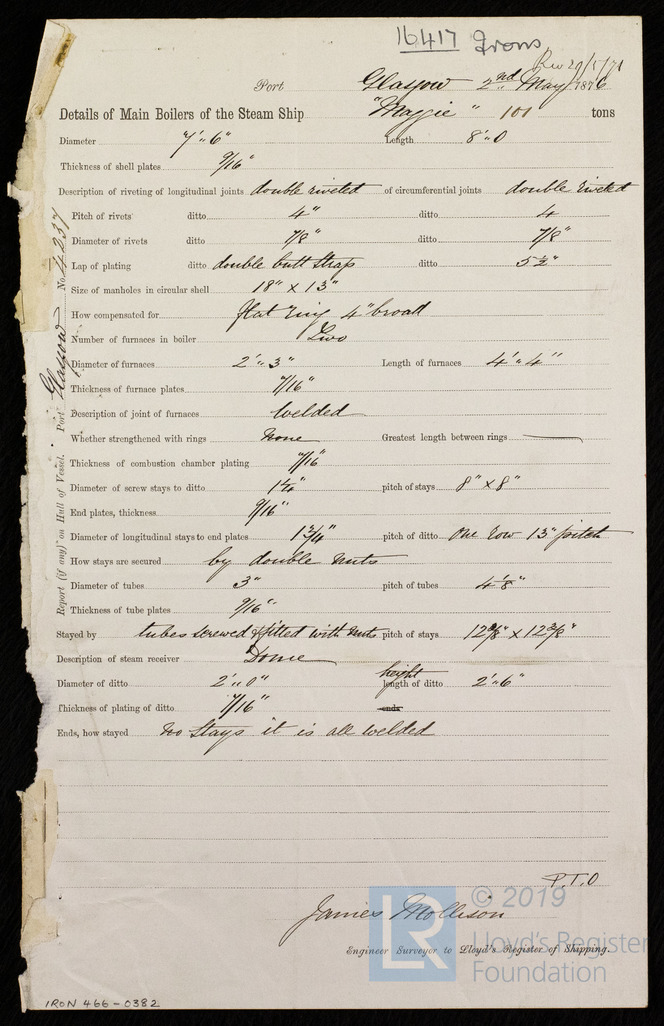 16417 Irons
Rec 29/5/76
Port Glasgow 2nd May 1876
Details of Main Boilers of the Steam Ship "Maggie" 101 tons
Diameter 7'" 6" Length 8'" 0
Thickness of shell plates 9/16"
Description of riveting of longitudinal joints double riveted of circumferential joints double riveted
Pitch of rivets ditto 4" ditto 4
Diameter of rivets ditto 7/8" ditto 7/8"
Lap of plating ditto double butt straps ditto 5½"
Size of manholes in circular shell 18" x 13"
How compensated for flat ring 4" broad
Number of furnaces in boiler Two
Diameter of furnaces 2'" 3" Length of furnaces 4'" 4"
Thickness of furnace plates 7/16"
Description of joint of furnaces Welded
Whether strengthened with rings None Greatest length between rings
Thickness of combustion chamber plating 7/16"
Diameter of screw stays to ditto 1¼" pitch of stays 8" x 8"
End plates, thickness 9/16"
Diameter of longitudinal stays to end plates pitch of ditto One row 13" pitch
How stays are secured by double nuts
Diameter of tubes 3" pitch of tubes 4⅛"
Thickness of tube plates 9/16"
Stayed by tubes screwed & fitted with nuts pitch of stays 12⅜" x 12⅜"
Description of steam receiver Dome
Diameter of ditto 2'" 0" height length of ditto 2'" 6"
Thickness of plating of ditto 7/16" ends
Ends, how stayed No stays it is all welded
P.T.O
James Mollison
Engineer Surveyor to Lloyd's Register of Shipping.
Report (if any) on Hull of Vessel. Port Glasgow No. 4237
IRON 466-0382
LR © 2019
Lloyd's Register
Foundation